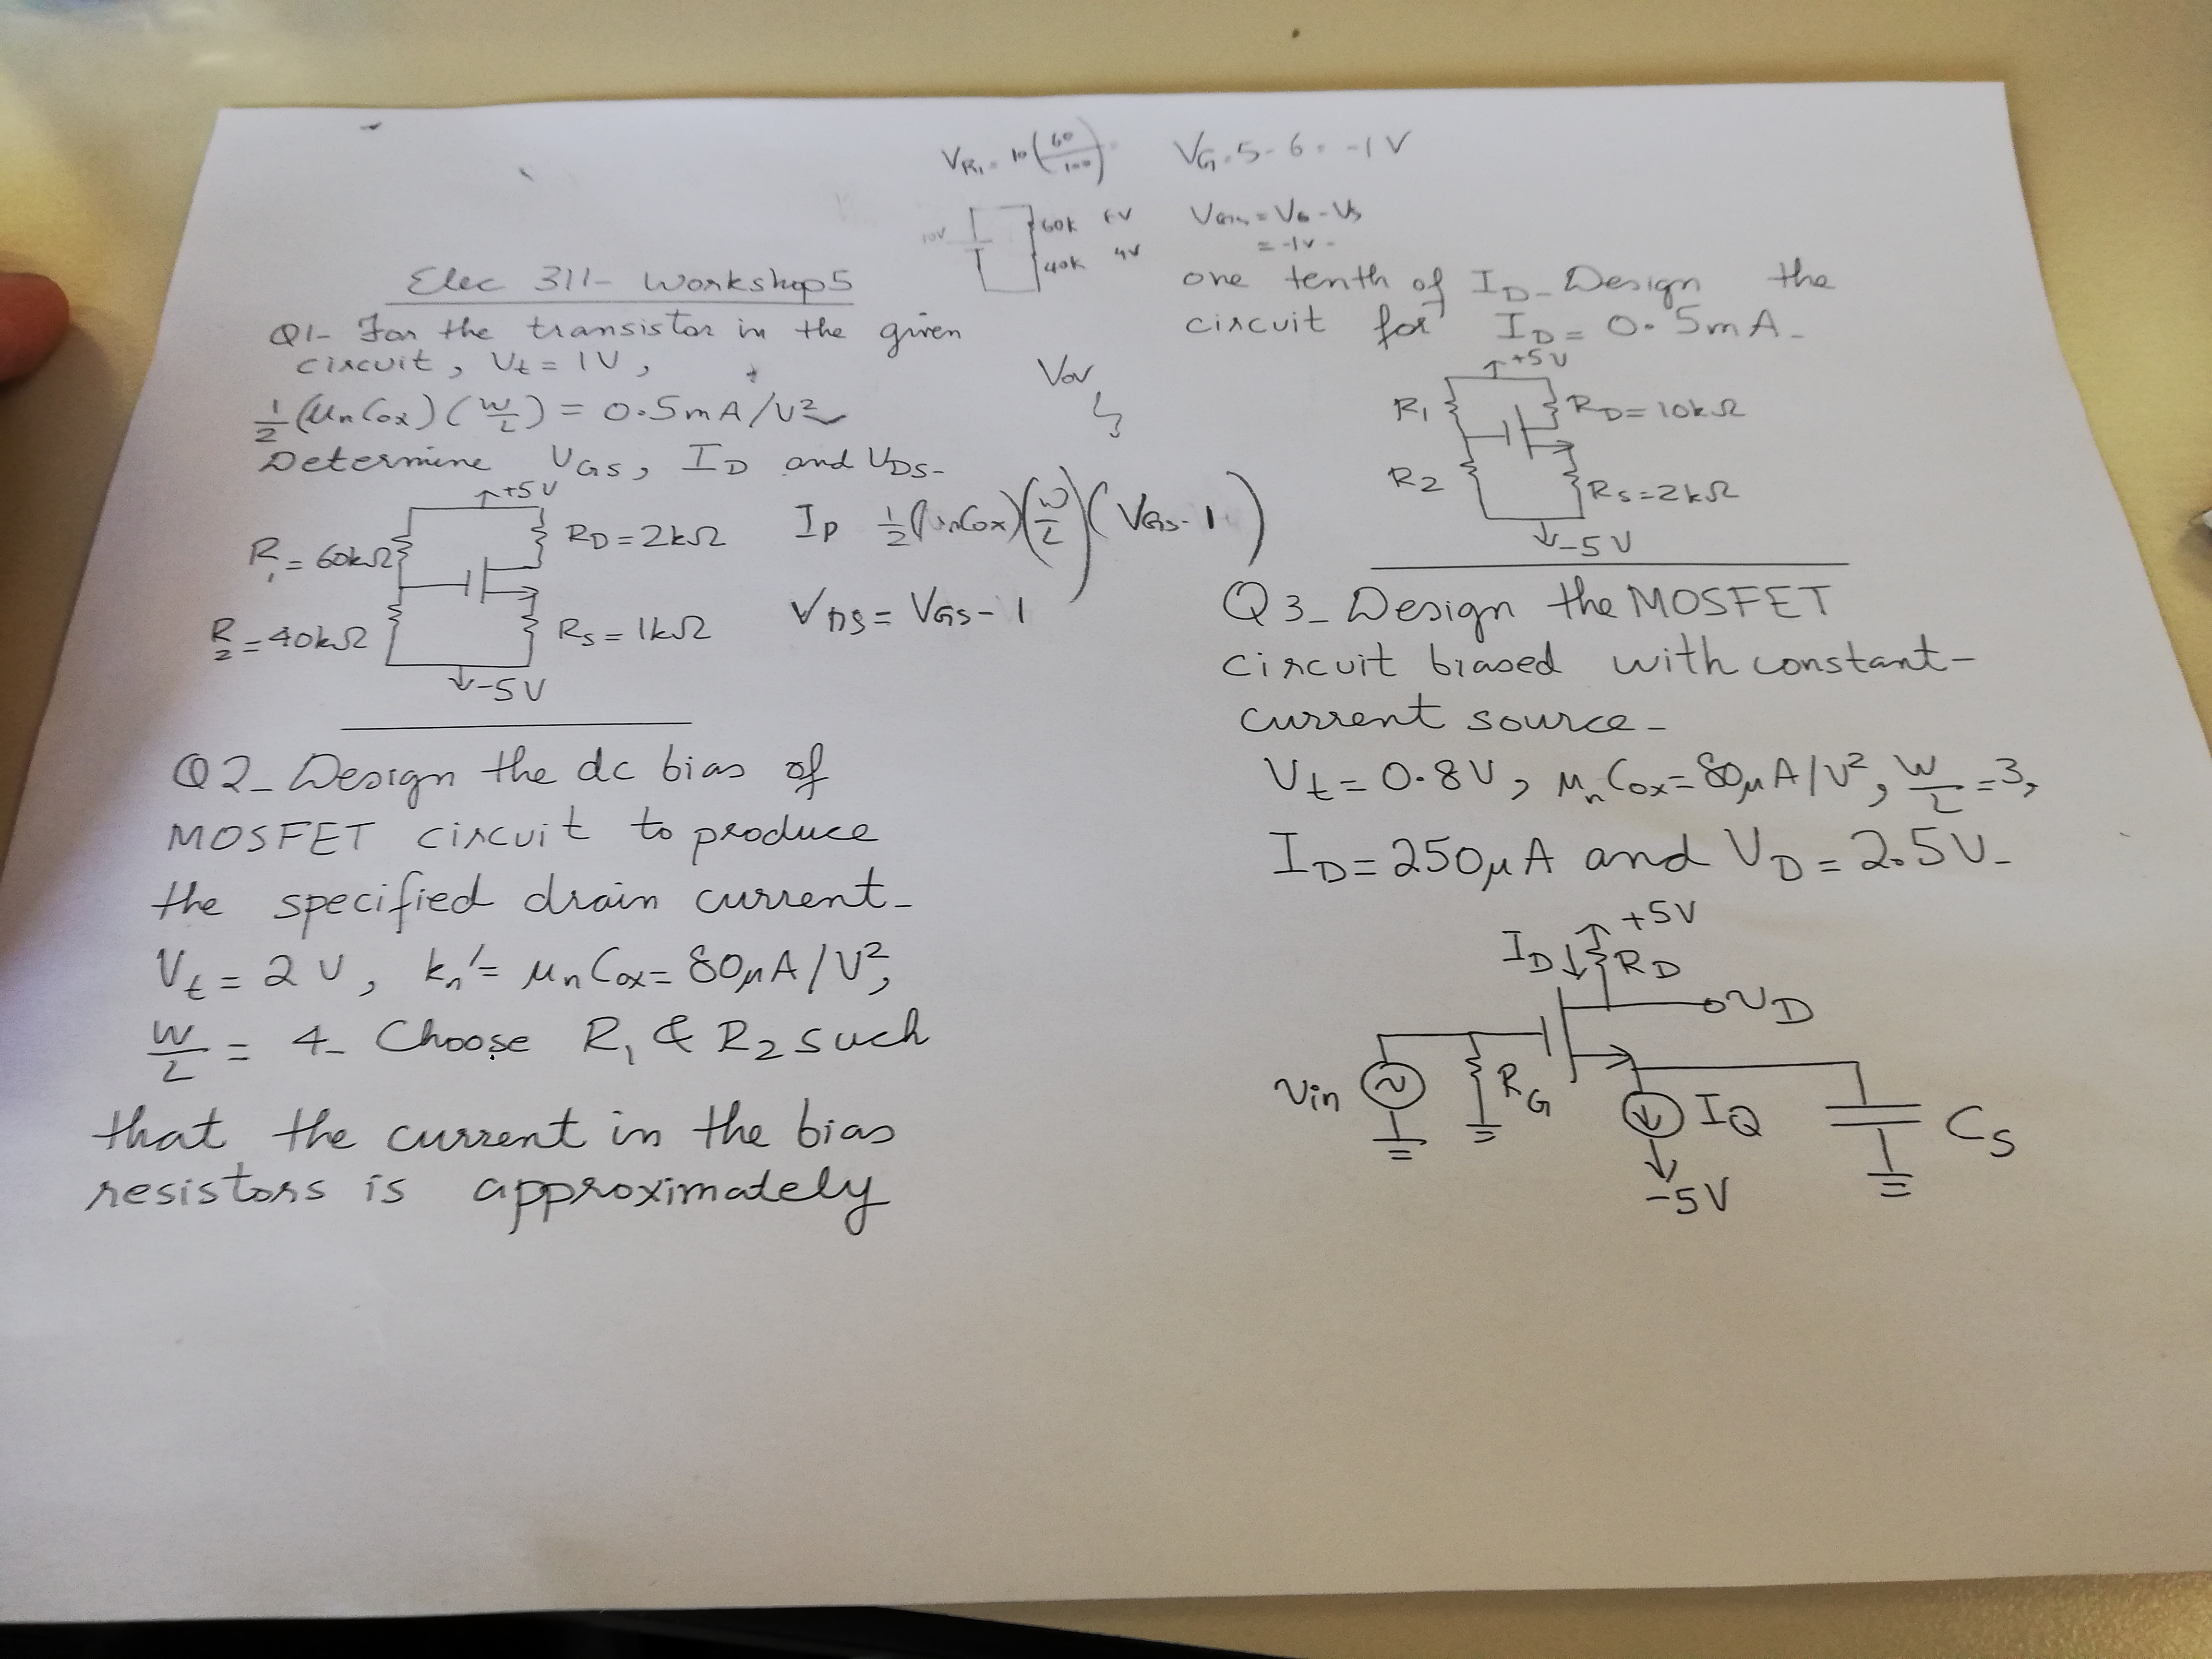 V_R1 = 10(60/100)
V_G = 5 - 6 = -1 V
10V
60k 6V
40k 4V
V_GS = V_G - V_S
= -1V -
Elec 311- Workshop5
Q1- For the transistor in the given
circuit, V_t = 1V,
1/2 (μnCox)(W/L) = 0.5mA/V²
Determine V_GS, I_D and V_DS-
+5V
R_1 = 60kΩ
R_D = 2kΩ
R_2 = 40kΩ
R_S = 1kΩ
-5V
Vov
I_D 1/2(μnCox)(W/L)(V_GS - 1)
V_DS = V_GS - 1
Q2- Design the dc bias of
MOSFET circuit to produce
the specified drain current-
V_t = 2V, kn' = μnCox = 80μA/V²,
W/L = 4- Choose R_1 & R_2 such
that the current in the bias
resistors is approximately
one tenth of I_D- Design the
circuit for I_D = 0.5mA-
+5V
R_1
R_D = 10kΩ
R_2
R_S = 2kΩ
-5V
Q3- Design the MOSFET
circuit biased with constant-
current source-
V_t = 0.8V, μnCox = 80μA/V², W/L = 3,
I_D = 250μA and V_D = 2.5V-
+5V
I_D R_D
v_D
vin
R_G
I_Q
C_S
-5V